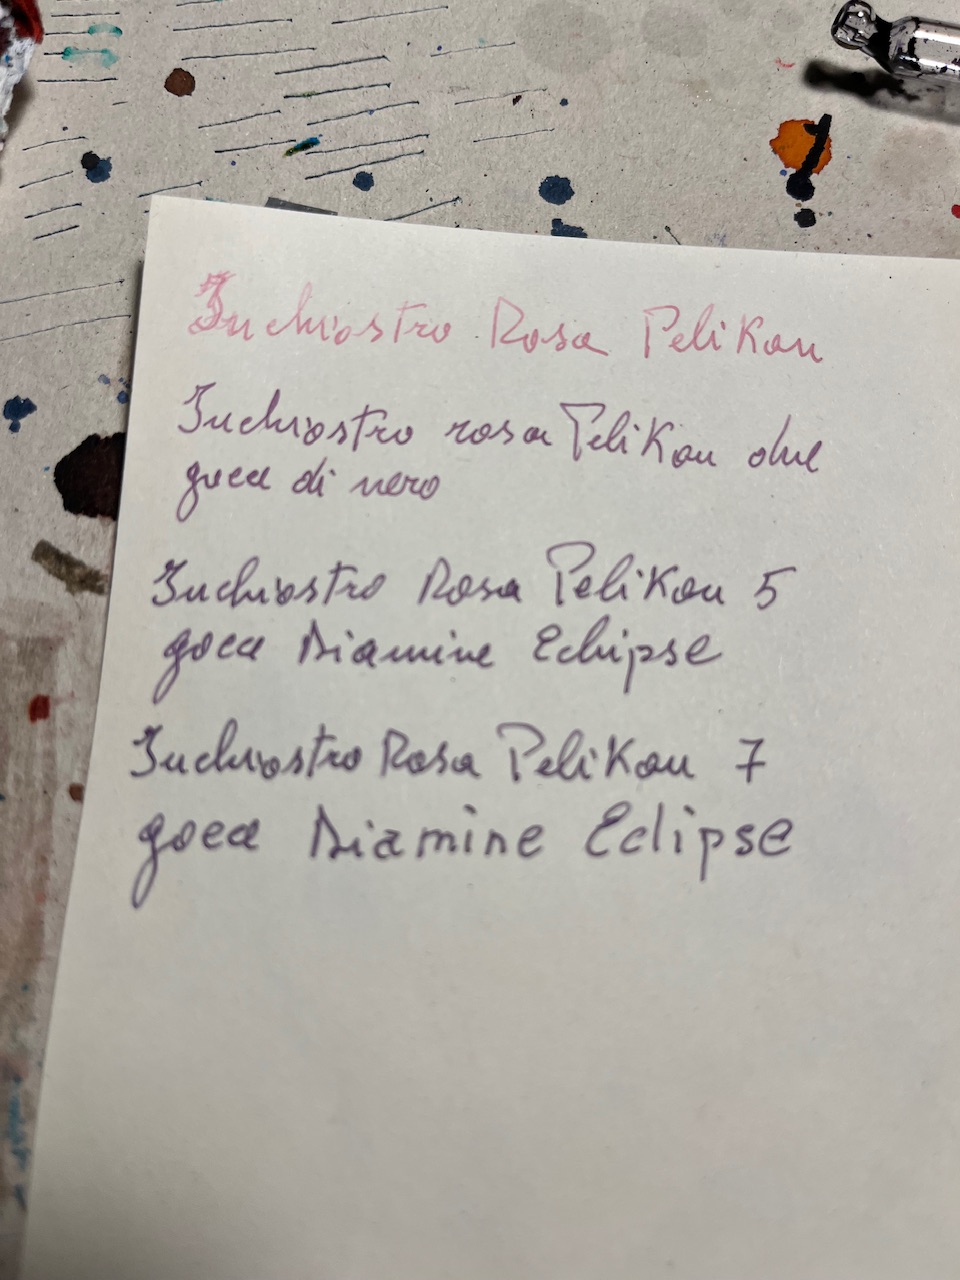 Inchiostro Rosa Pelikan
Inchiostro rosa Pelikan due
gocce di nero
Inchiostro Rosa Pelikan 5
gocce Diamine Eclipse
Inchiostro Rosa Pelikan 7
gocce Diamine Eclipse